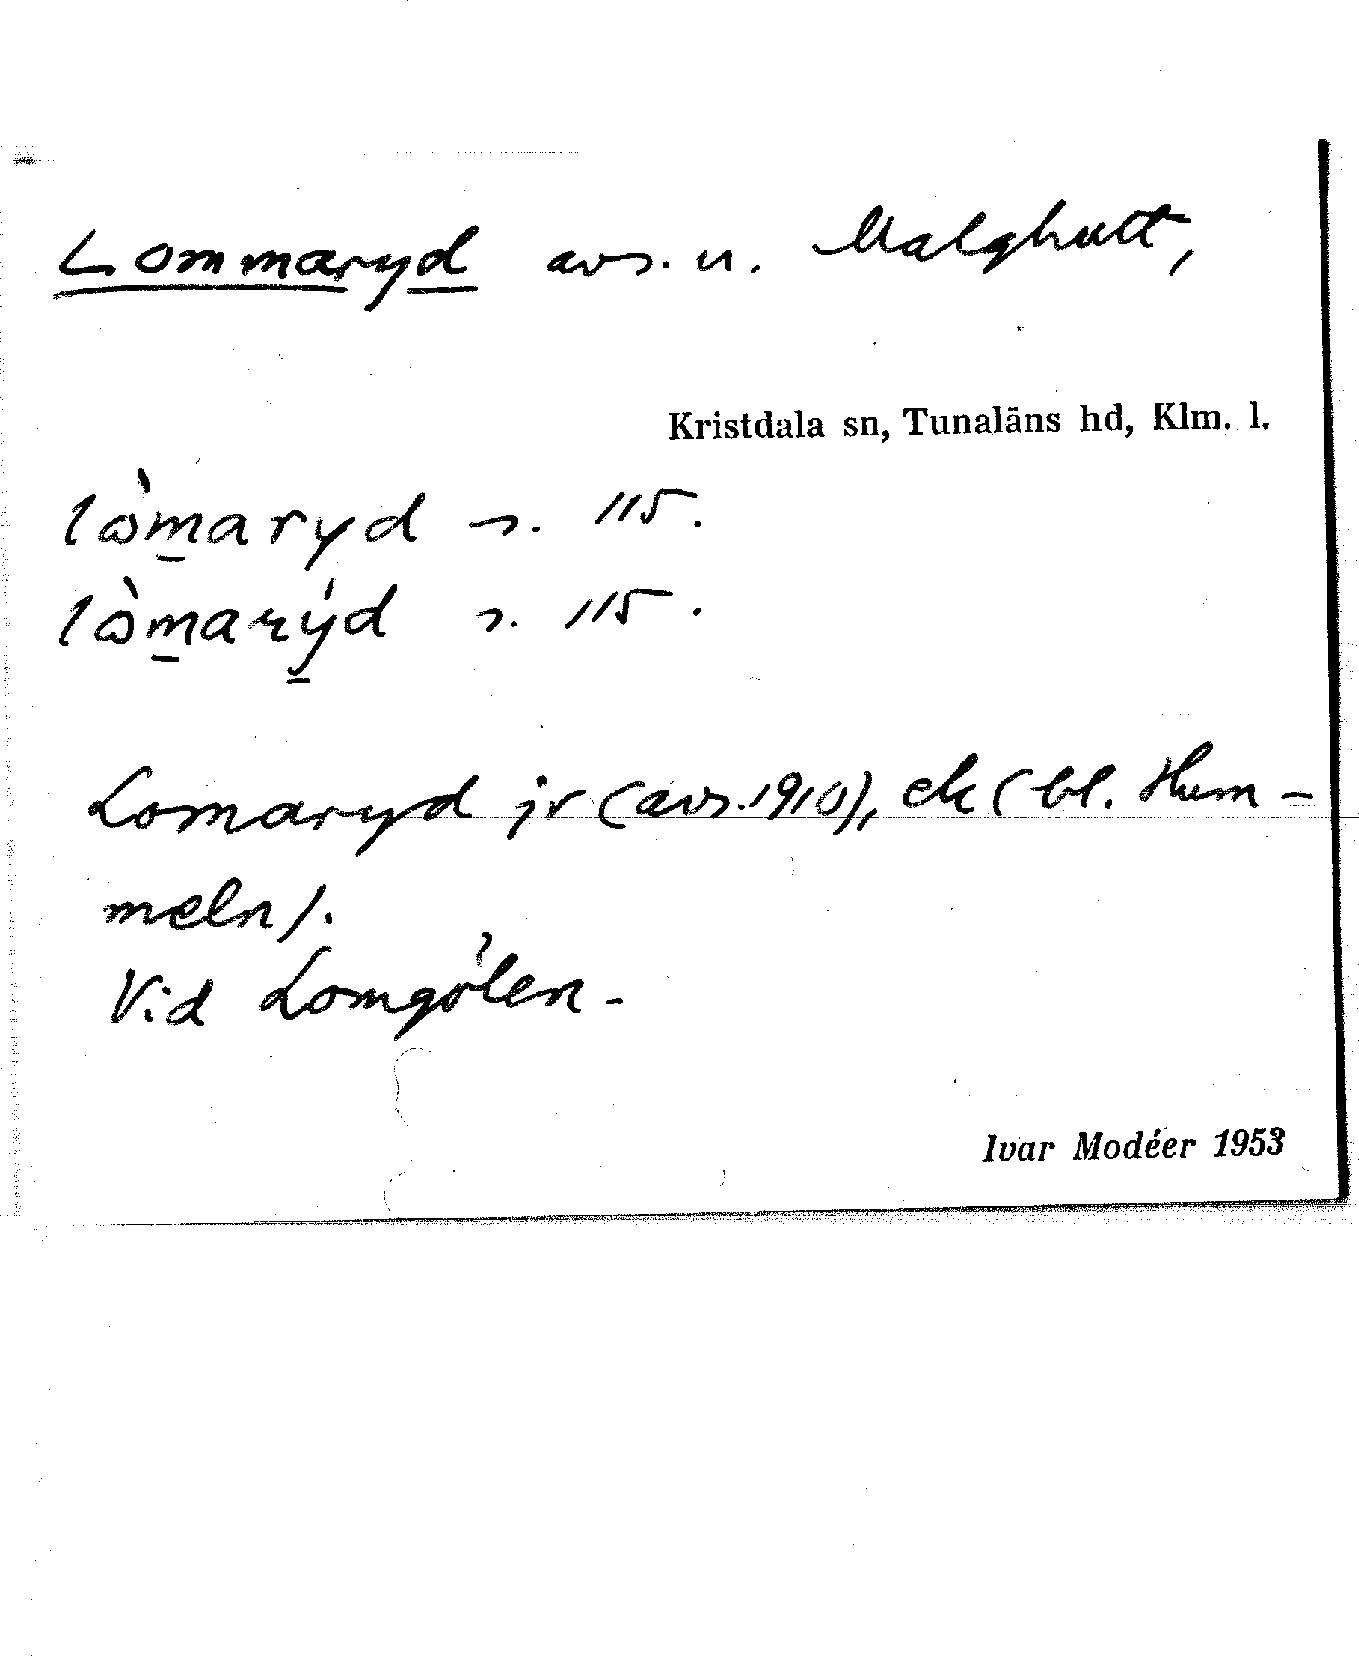 Lommaryd avs. u. Malghult,
Kristdala sn, Tunaläns hd, Klm. l.
lò̀maryd s. 115.
lòmarýd s. 115.
Lomaryd jr (avs. 1910), ek (bl. Hum-
meln).
Vid Lomgölen.
Ivar Modéer 1953